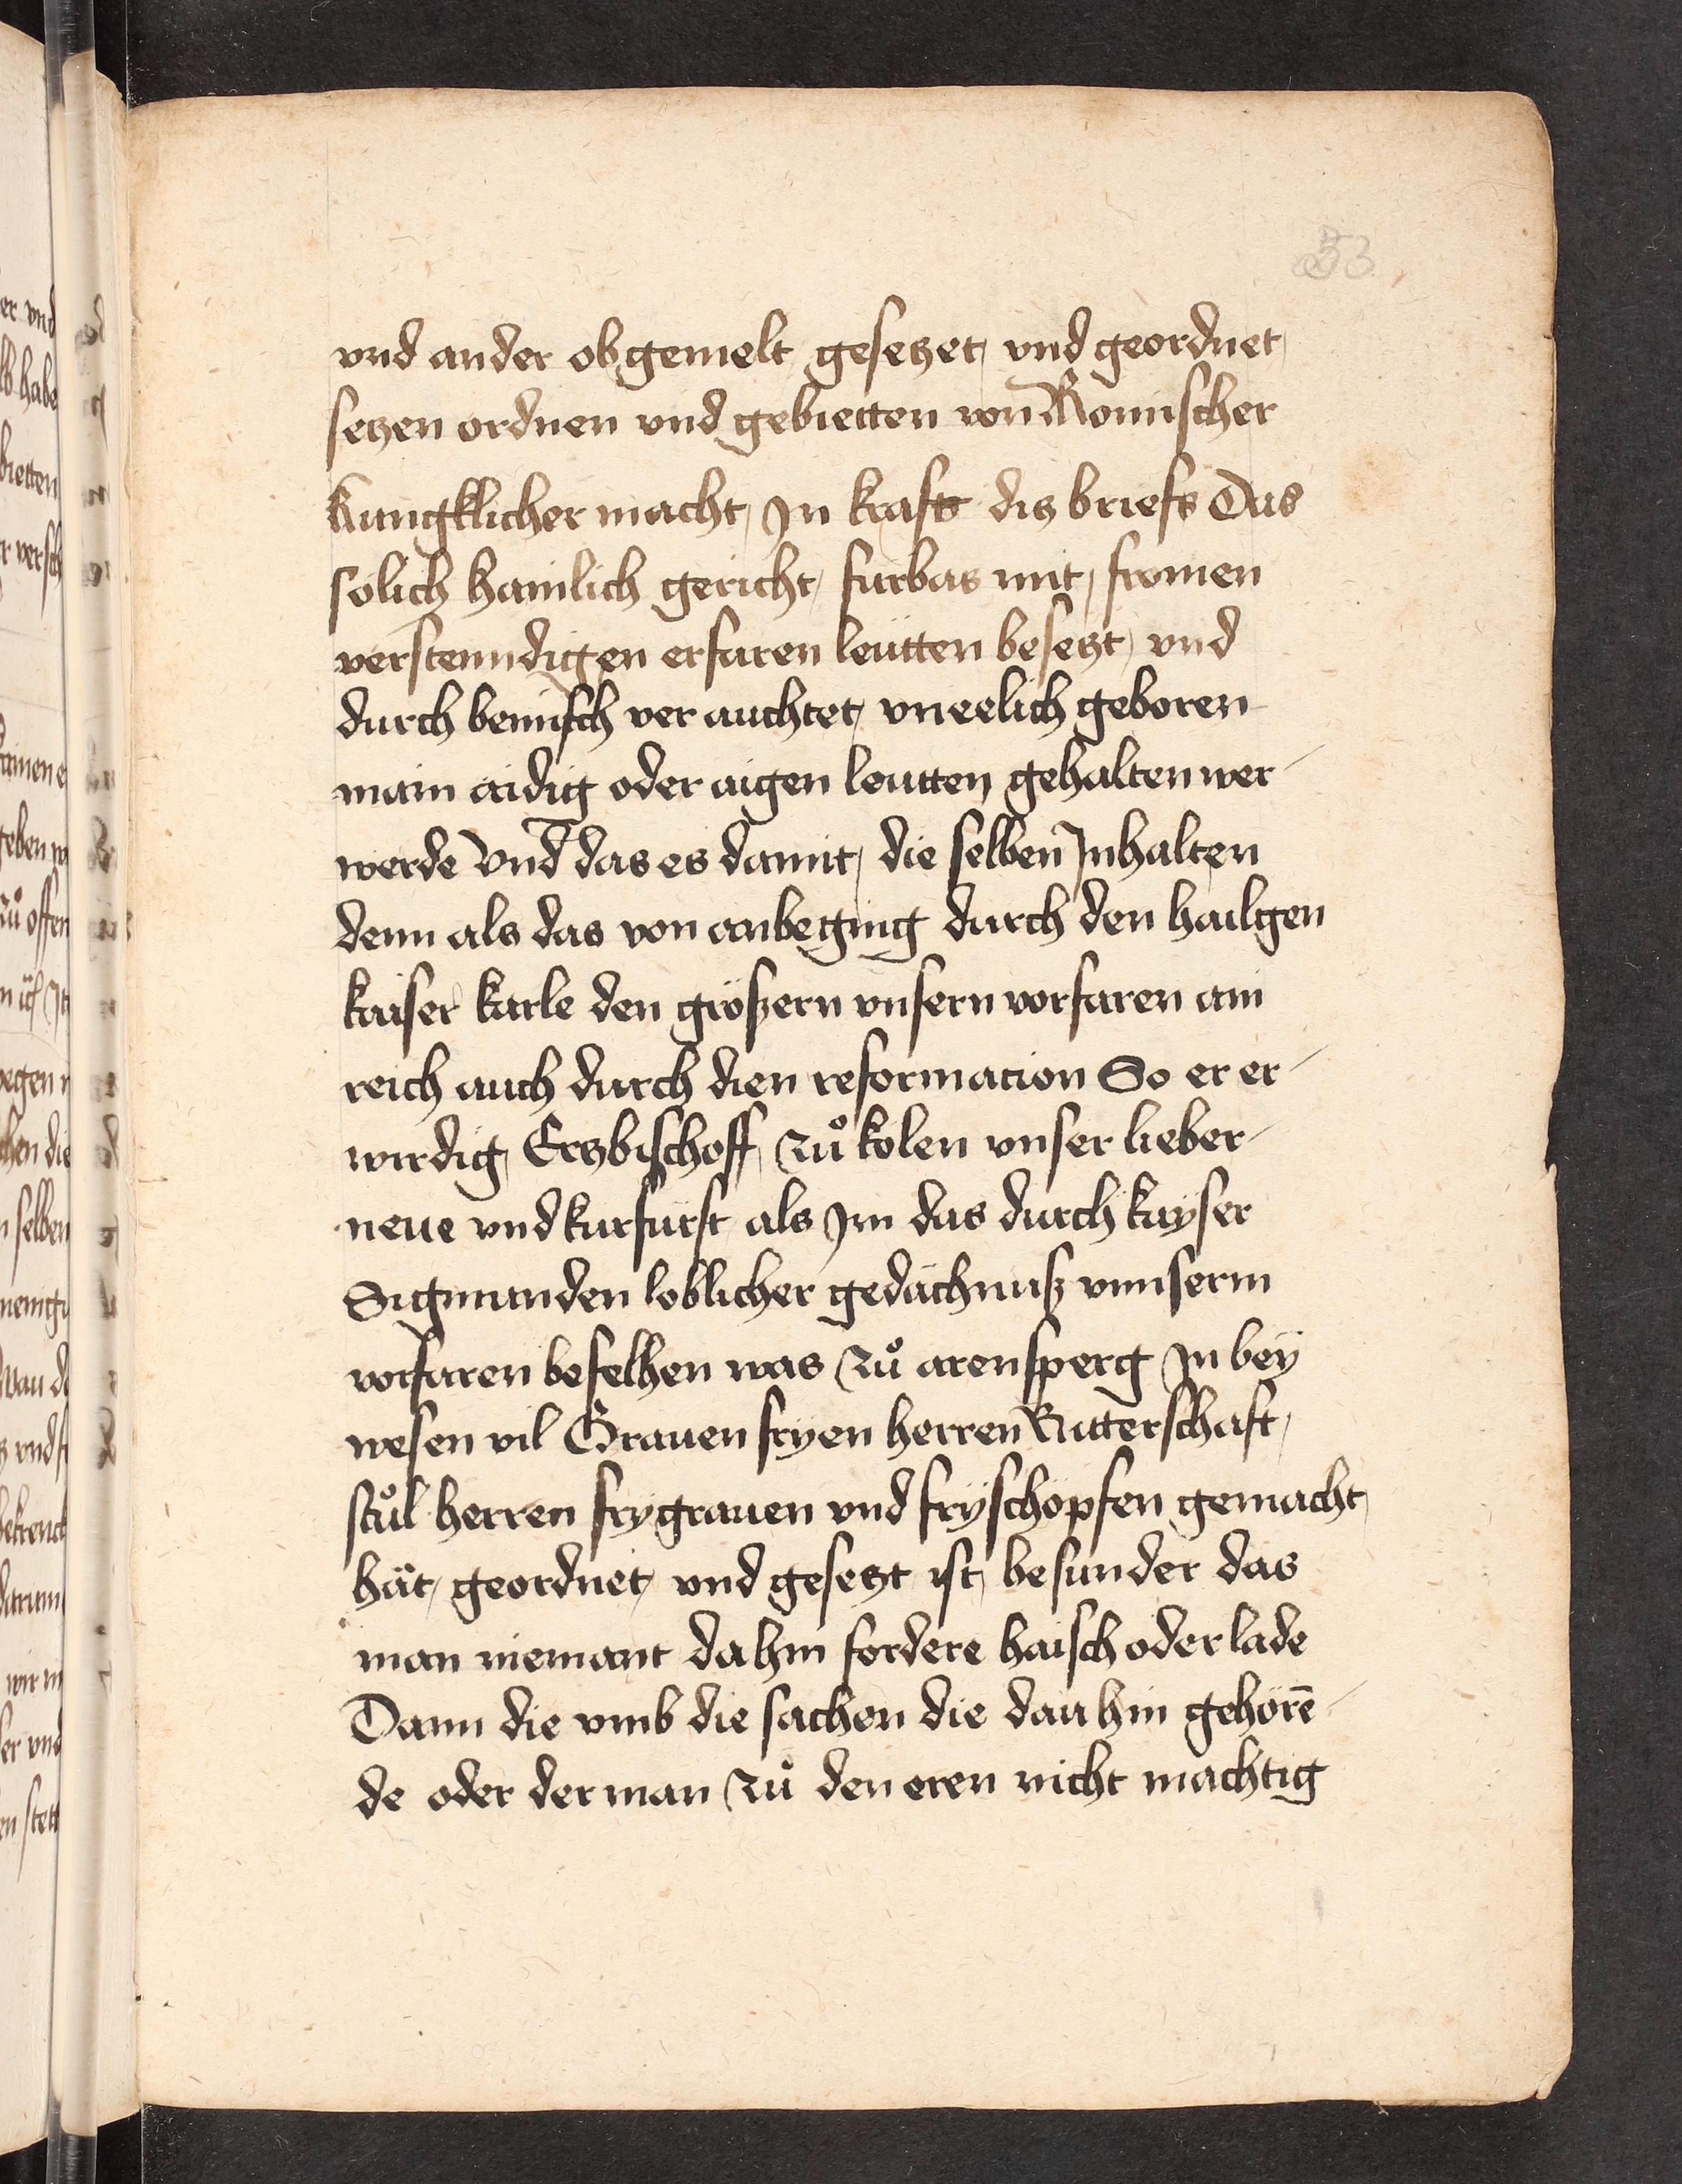 53
vnd ander obgemelt gesetzet vnd geordnet
setzen ordnen vnd gebietten von Romischer
kungklicher macht / In kraft dis briefs Das
solich hamlich gericht / furbas mit / fromen
verstenndigen erfaren leütten besetzt / vnd
durch bennisch ver auchtet vneelich geboren
main aidig oder aigen leutten gehalten wer
werde Vnd das es damit / die selben Inhalten
denn als das von anbeging durch den hailgen
kaiser karle den größern vnsern vorfaren am
reich auch durch dien reformacion So er er
wirdig Ertzbischoff zů kolen vnser lieber
neue vnd kurfürst als Im das durch kayser
Sigmunden loblicher gedächnuß vnnserm
vorfaren befelhen was zů arensperg In beÿ
wesen vil Grauen fryen herren Ritterschaft /
stůl herren frygrauen vnd frÿschöpfen gemacht
hät / geordnet / vnd gesetzt ist / besunder das
man niemant dahin fordere haisch oder lade
Dann die vmb die sachen die dauhin gehörē
de oder der man zů den eren nicht machtig